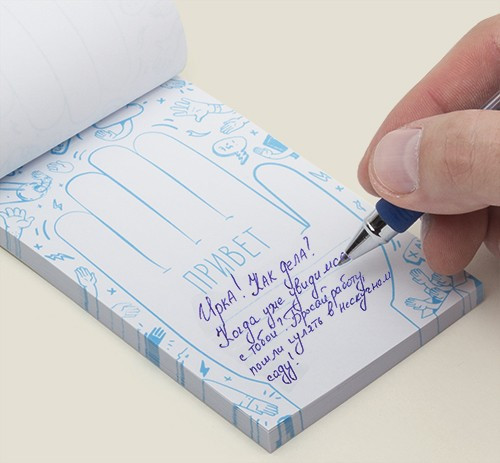 ПРИВЕТ
Ирка! Как дела?
Когда уже увидимся
с тобой? Бросай работу
пошли гулять в нескучном
саду!